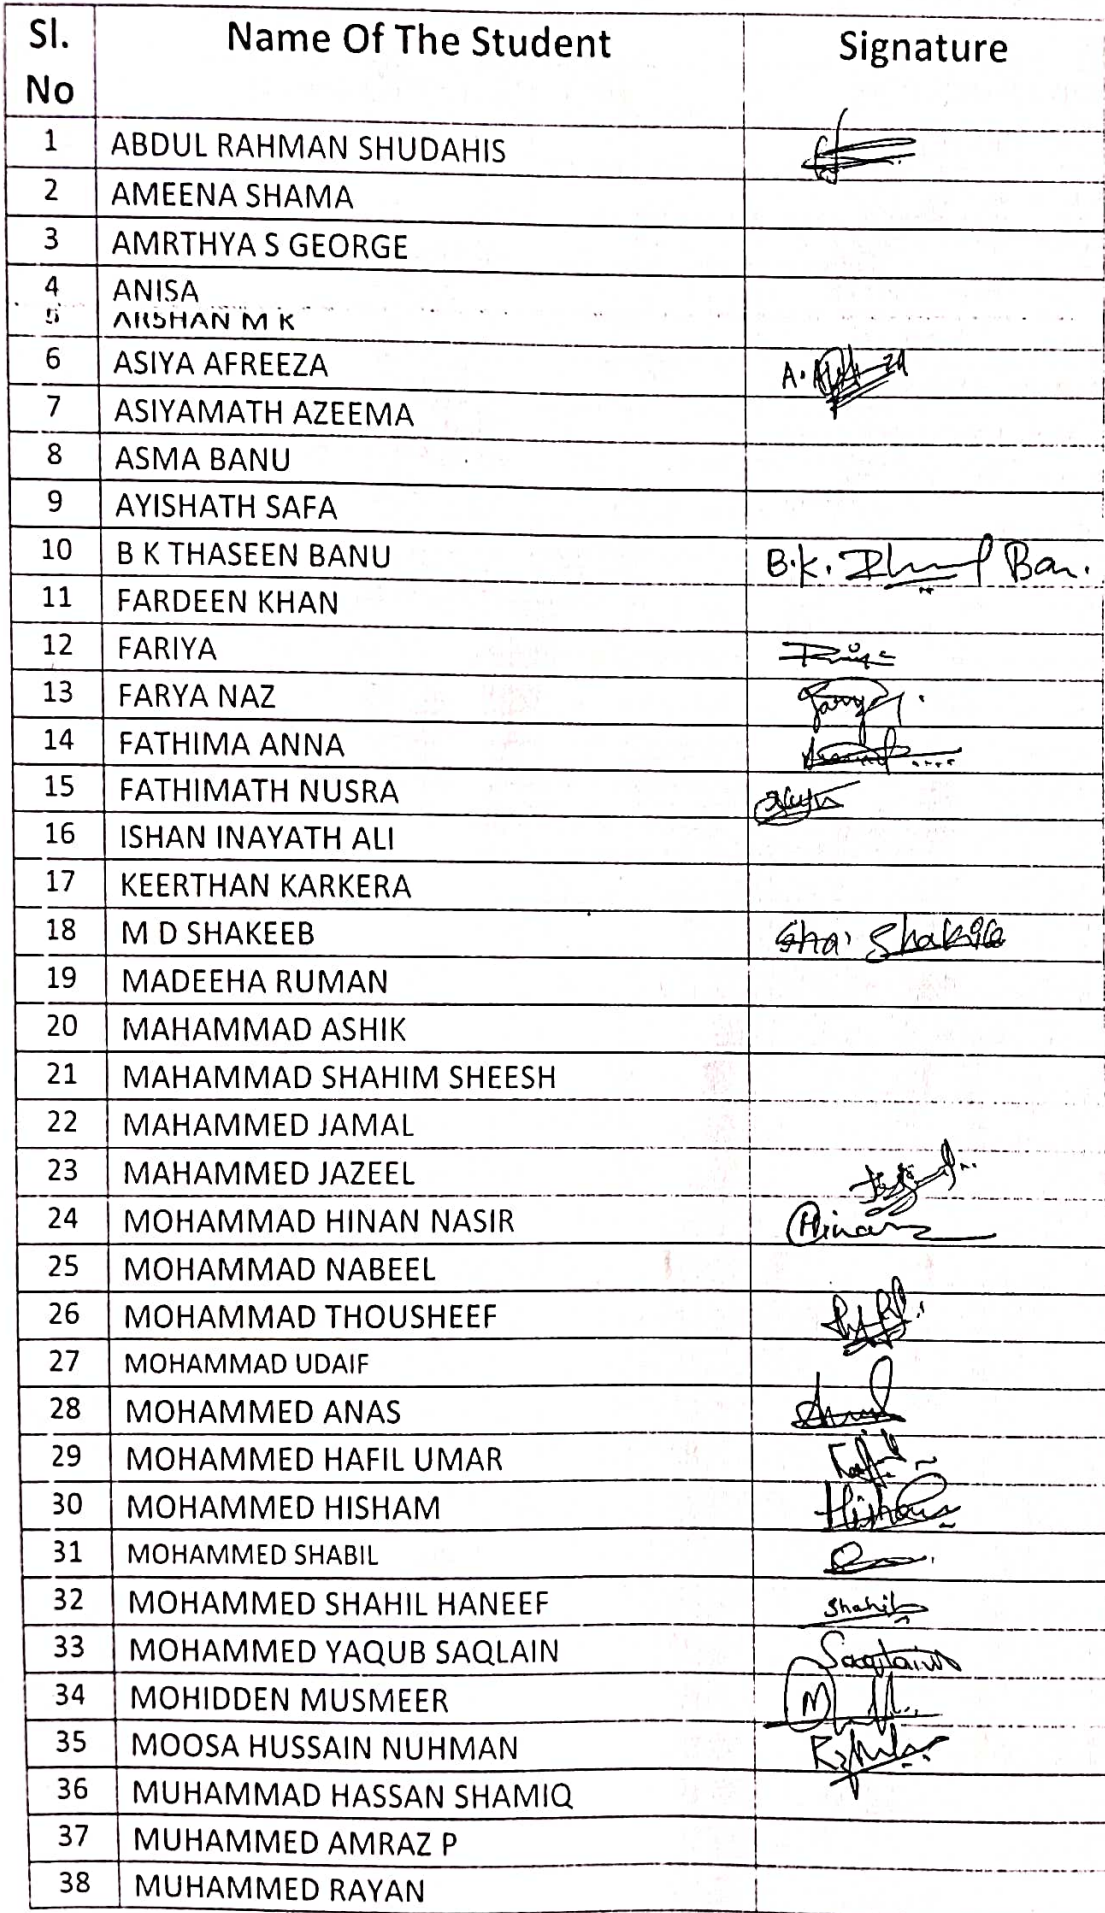 Sl. No Name Of The Student Signature
1 ABDUL RAHMAN SHUDAHIS
2 AMEENA SHAMA
3 AMRTHYA S GEORGE
4 ANISA
5 ARSHAN M K
6 ASIYA AFREEZA
7 ASIYAMATH AZEEMA
8 ASMA BANU
9 AYISHATH SAFA
10 B K THASEEN BANU B.K.
11 FARDEEN KHAN
12 FARIYA
13 FARYA NAZ
14 FATHIMA ANNA
15 FATHIMATH NUSRA
16 ISHAN INAYATH ALI
17 KEERTHAN KARKERA
18 M D SHAKEEB
19 MADEEHA RUMAN
20 MAHAMMAD ASHIK
21 MAHAMMAD SHAHIM SHEESH
22 MAHAMMED JAMAL
23 MAHAMMED JAZEEL
24 MOHAMMAD HINAN NASIR Hinan
25 MOHAMMAD NABEEL
26 MOHAMMAD THOUSHEEF
27 MOHAMMAD UDAIF
28 MOHAMMED ANAS
29 MOHAMMED HAFIL UMAR
30 MOHAMMED HISHAM Hisham
31 MOHAMMED SHABIL
32 MOHAMMED SHAHIL HANEEF Shahil
33 MOHAMMED YAQUB SAQLAIN Saqlain
34 MOHIDDEN MUSMEER
35 MOOSA HUSSAIN NUHMAN
36 MUHAMMAD HASSAN SHAMIQ
37 MUHAMMED AMRAZ P
38 MUHAMMED RAYAN